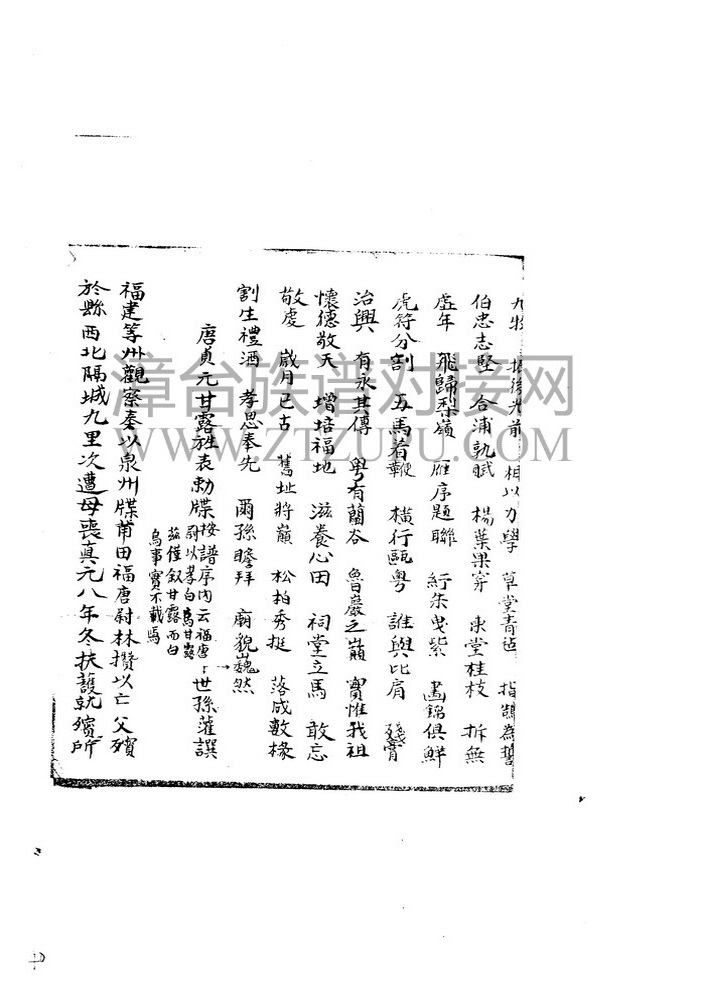 九牧 振後光前 相以力學 草堂青毡 指鵠為誓
伯忠志堅 合浦執賦 楊葉果穿 東堂桂枝 拆無
虛年 飛歸梨嶺 雁序題聯 紆朱曳紫 畫錦俱鮮
虎符分割 五馬着鞭 橫行甌粵 誰與比肩 殘膏
治興 有永其傳 粵有蘭谷 魯巖之巔 實惟我祖
懷德敬天 增培福地 滋養心田 祠堂立馬 敢忘
敬虔 歲月已古 舊址將巔 松柏秀挺 落成數椽
割生禮酒 孝思奉先 爾孫瞻拜 廟貌巍然
唐貞元甘露旌表勅牒 世孫蘿譔
按譜序內云福唐
尉以孝白烏甘露
茲僅叙甘露而白
烏事實不載焉
福建等州觀察奏以泉州牒莆田福唐尉林攢以亡父殯
於縣西北隔城九里次遭母喪真元八年冬扶護就殯所
漳台族谱对接网
WWW.ZTZUPU.COM